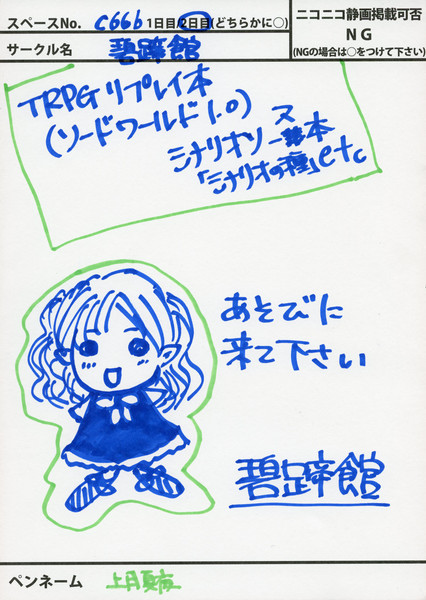 スペースNo. C66b 1日目/2日目(どちらかに○)
サークル名 碧蹄館
ニコニコ静画掲載可否
NG
(NGの場合は○をつけて下さい)
TRPGリプレイ本
(ソードワールド1.0)
シナリオソース本
「シナリオの種」etc
あそびに
来て下さい
碧蹄館
ペンネーム 上月